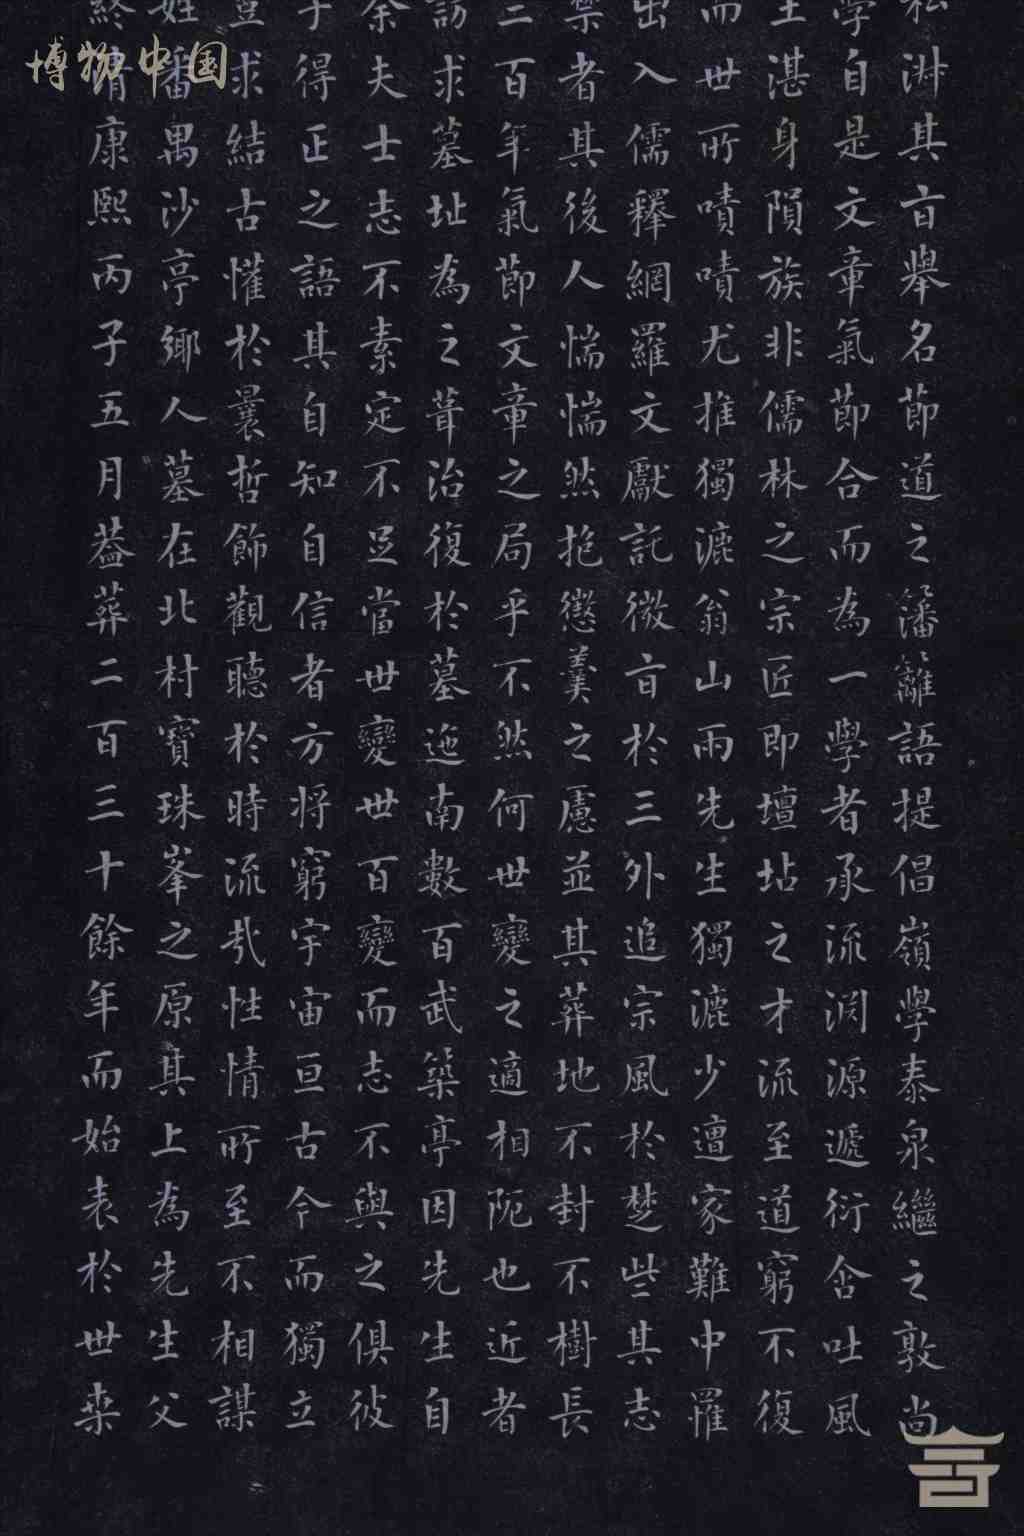 博物中国
私淑其旨舉名節道之籓籬語提倡嶺學泰泉繼之敦尚
學自是文章氣節合而為一學者承流渊源遞衍含吐風
湛身隕族非儒林之宗匠即壇坫之才流至道窮不復
而世所嘖嘖尤推獨漉翁山兩先生獨漉少遭家難中罹
出入儒釋網羅文獻託微旨於三外追宗風於楚些其志
禁者其後人惴惴然抱懲羹之慮並其葬地不封不樹長
三百年氣節文章之局乎不然何世變之適相阨也近者
訪求墓址為之葺治復於墓迤南數百武築亭因先生自
余夫士志不素定不足當世變世百變而志不與之俱彼
于得正之語其自知自信者方將窮宇宙亘古今而獨立
豈求結古懽於曩哲飾觀聽於時流㢤性情所至不相謀
姓番禺沙亭鄉人墓在北村寶珠峯之原其上為先生父
終清康熙丙子五月葢葬二百三十餘年而始表於世桒